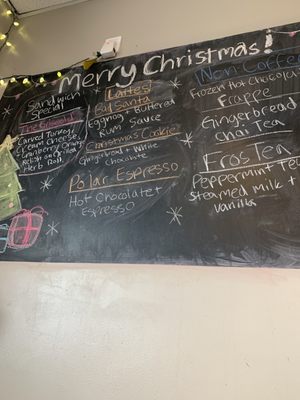 Merry Christmas!
Sandwich
Special
Carved Turkey
Cream Cheese
Cranberry Orange
Relish on Grilled
Herb Roll
Lattes!
Bad Santa
Eggnog + Buttered
Rum Sauce
Christmas Cookie
Gingerbread + White
Chocolate
Polar Espresso
Hot Chocolate +
Espresso
Non-Coffee
Frozen Hot Chocolate
Frappe
Gingerbread
Chai Tea
Fros Tea
Peppermint Tea
Steamed Milk +
Vanilla